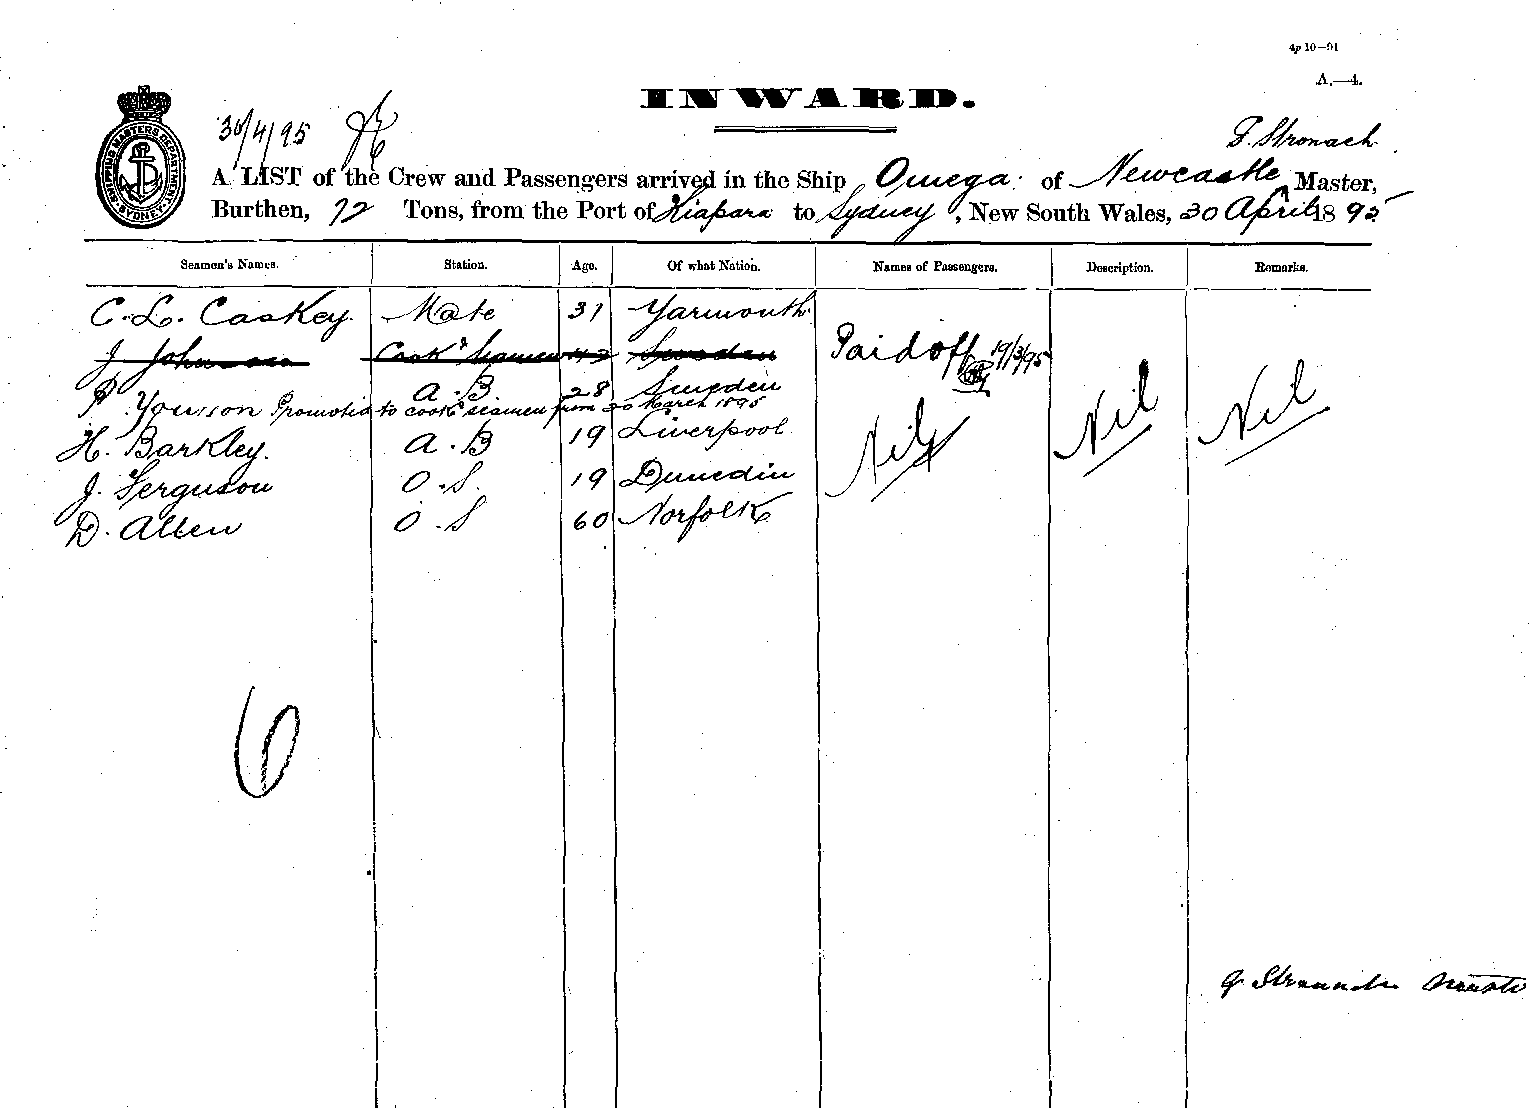 4p 10—91
A.—4.
INWARD.
30/4/95
SHIPPING MASTERS DEPARTMENT
SYDNEY
Stronach
A LIST of the Crew and Passengers arrived in the Ship Omega of Newcastle Master,
Burthen, 72 Tons, from the Port of Kiapara to Sydney, New South Wales, 30 April 1895
Seamen's Names. Station. Age. Of what Nation. Names of Passengers. Description. Remarks.
C. L. Caskey Mate 31 Yarmouth
J Johnson Cook & Seamen 42 Sweden Paid off 19/3/95
P. Yourson A.B 28 Sweden
Promoted to cook & seamen from 20 March 1895
H. Barkley. A.B 19 Liverpool Nil Nil Nil
J. Ferguson O.S. 19 Dunedin
D. Allen O.S 60 Norfolk
6